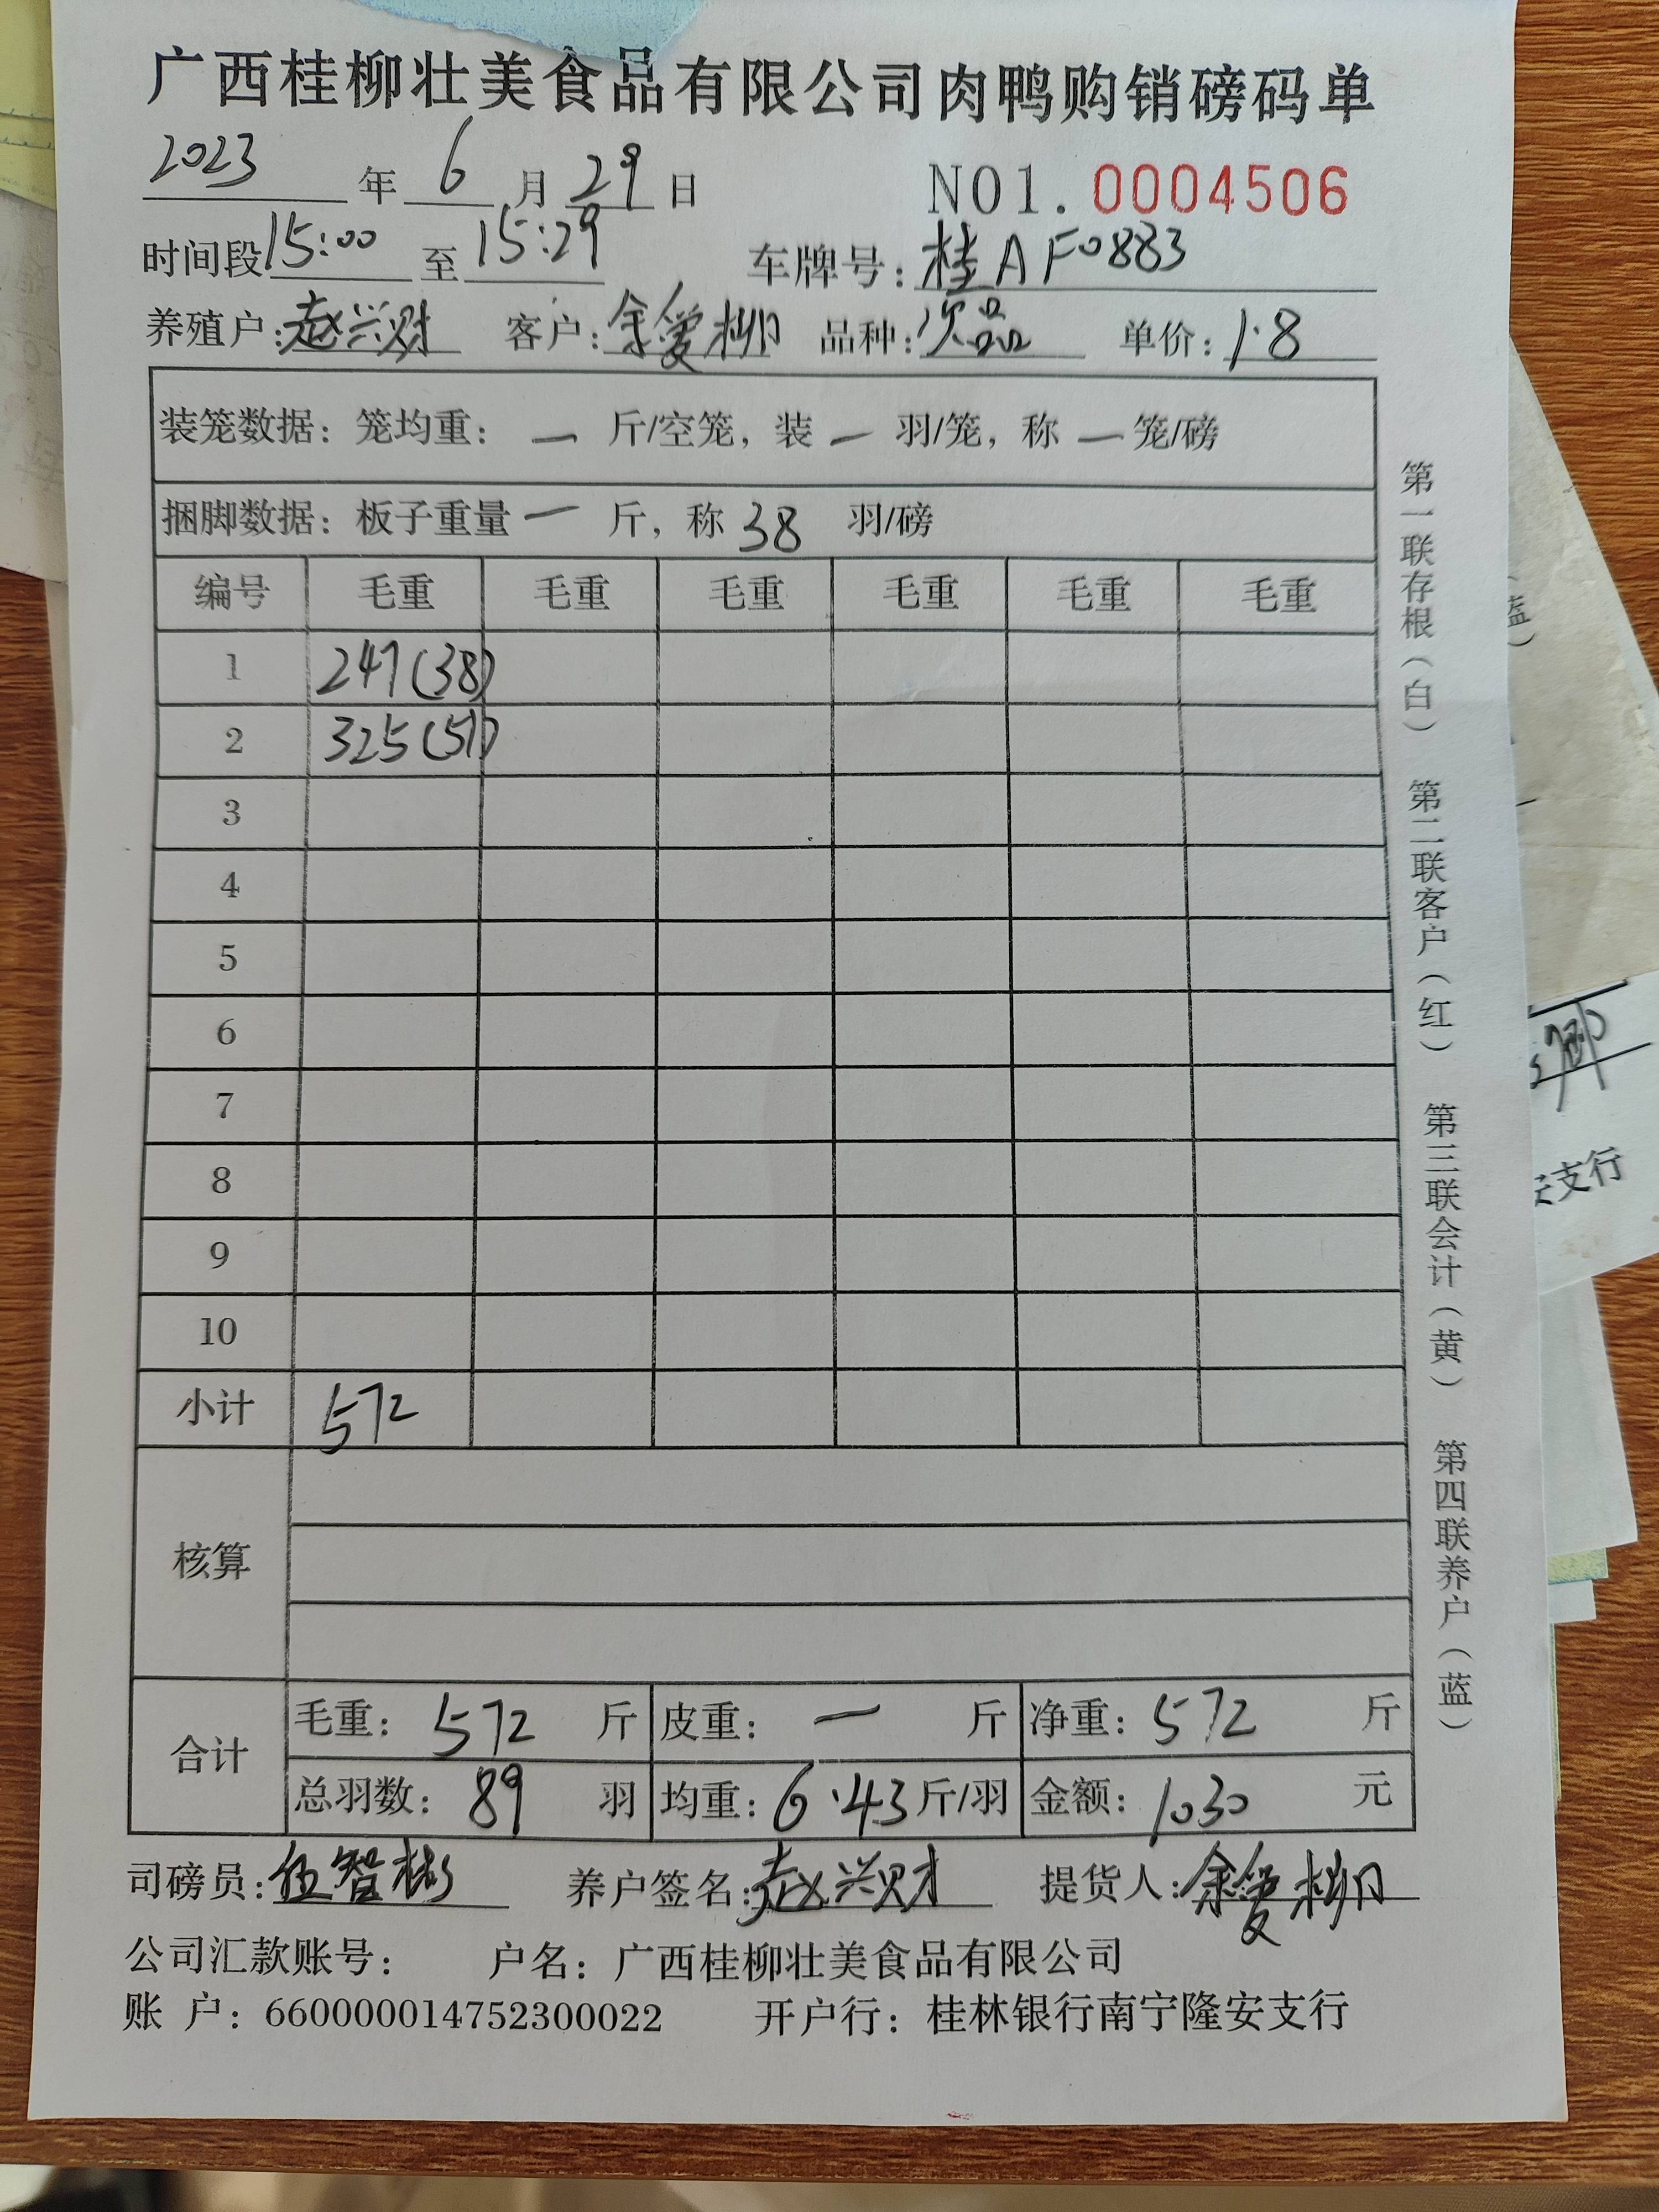 广西桂柳壮美食品有限公司肉鸭购销磅码单
2023 年 6 月 29 日 NO1. 0004506
时间段 15:00 至 15:29 车牌号: 桂AF0883
养殖户: 赵兴财 客户: 余爱柳 品种: 次品 单价: 1.8
装笼数据: 笼均重: — 斤/空笼, 装 — 羽/笼, 称 — 笼/磅
捆脚数据: 板子重量 — 斤, 称 38 羽/磅
编号 毛重 毛重 毛重 毛重 毛重 毛重
1 247(38)
2 325(51)
3
4
5
6
7
8
9
10
小计 572
核算
合计 毛重: 572 斤 皮重: — 斤 净重: 572 斤
总羽数: 89 羽 均重: 6.43 斤/羽 金额: 1030 元
司磅员: 伍智彬 养户签名: 赵兴财 提货人: 余爱柳
公司汇款账号: 户名: 广西桂柳壮美食品有限公司
账 户: 660000014752300022 开户行: 桂林银行南宁隆安支行
第一联存根(白) 第二联客户(红) 第三联会计(黄) 第四联养户(蓝)
支行